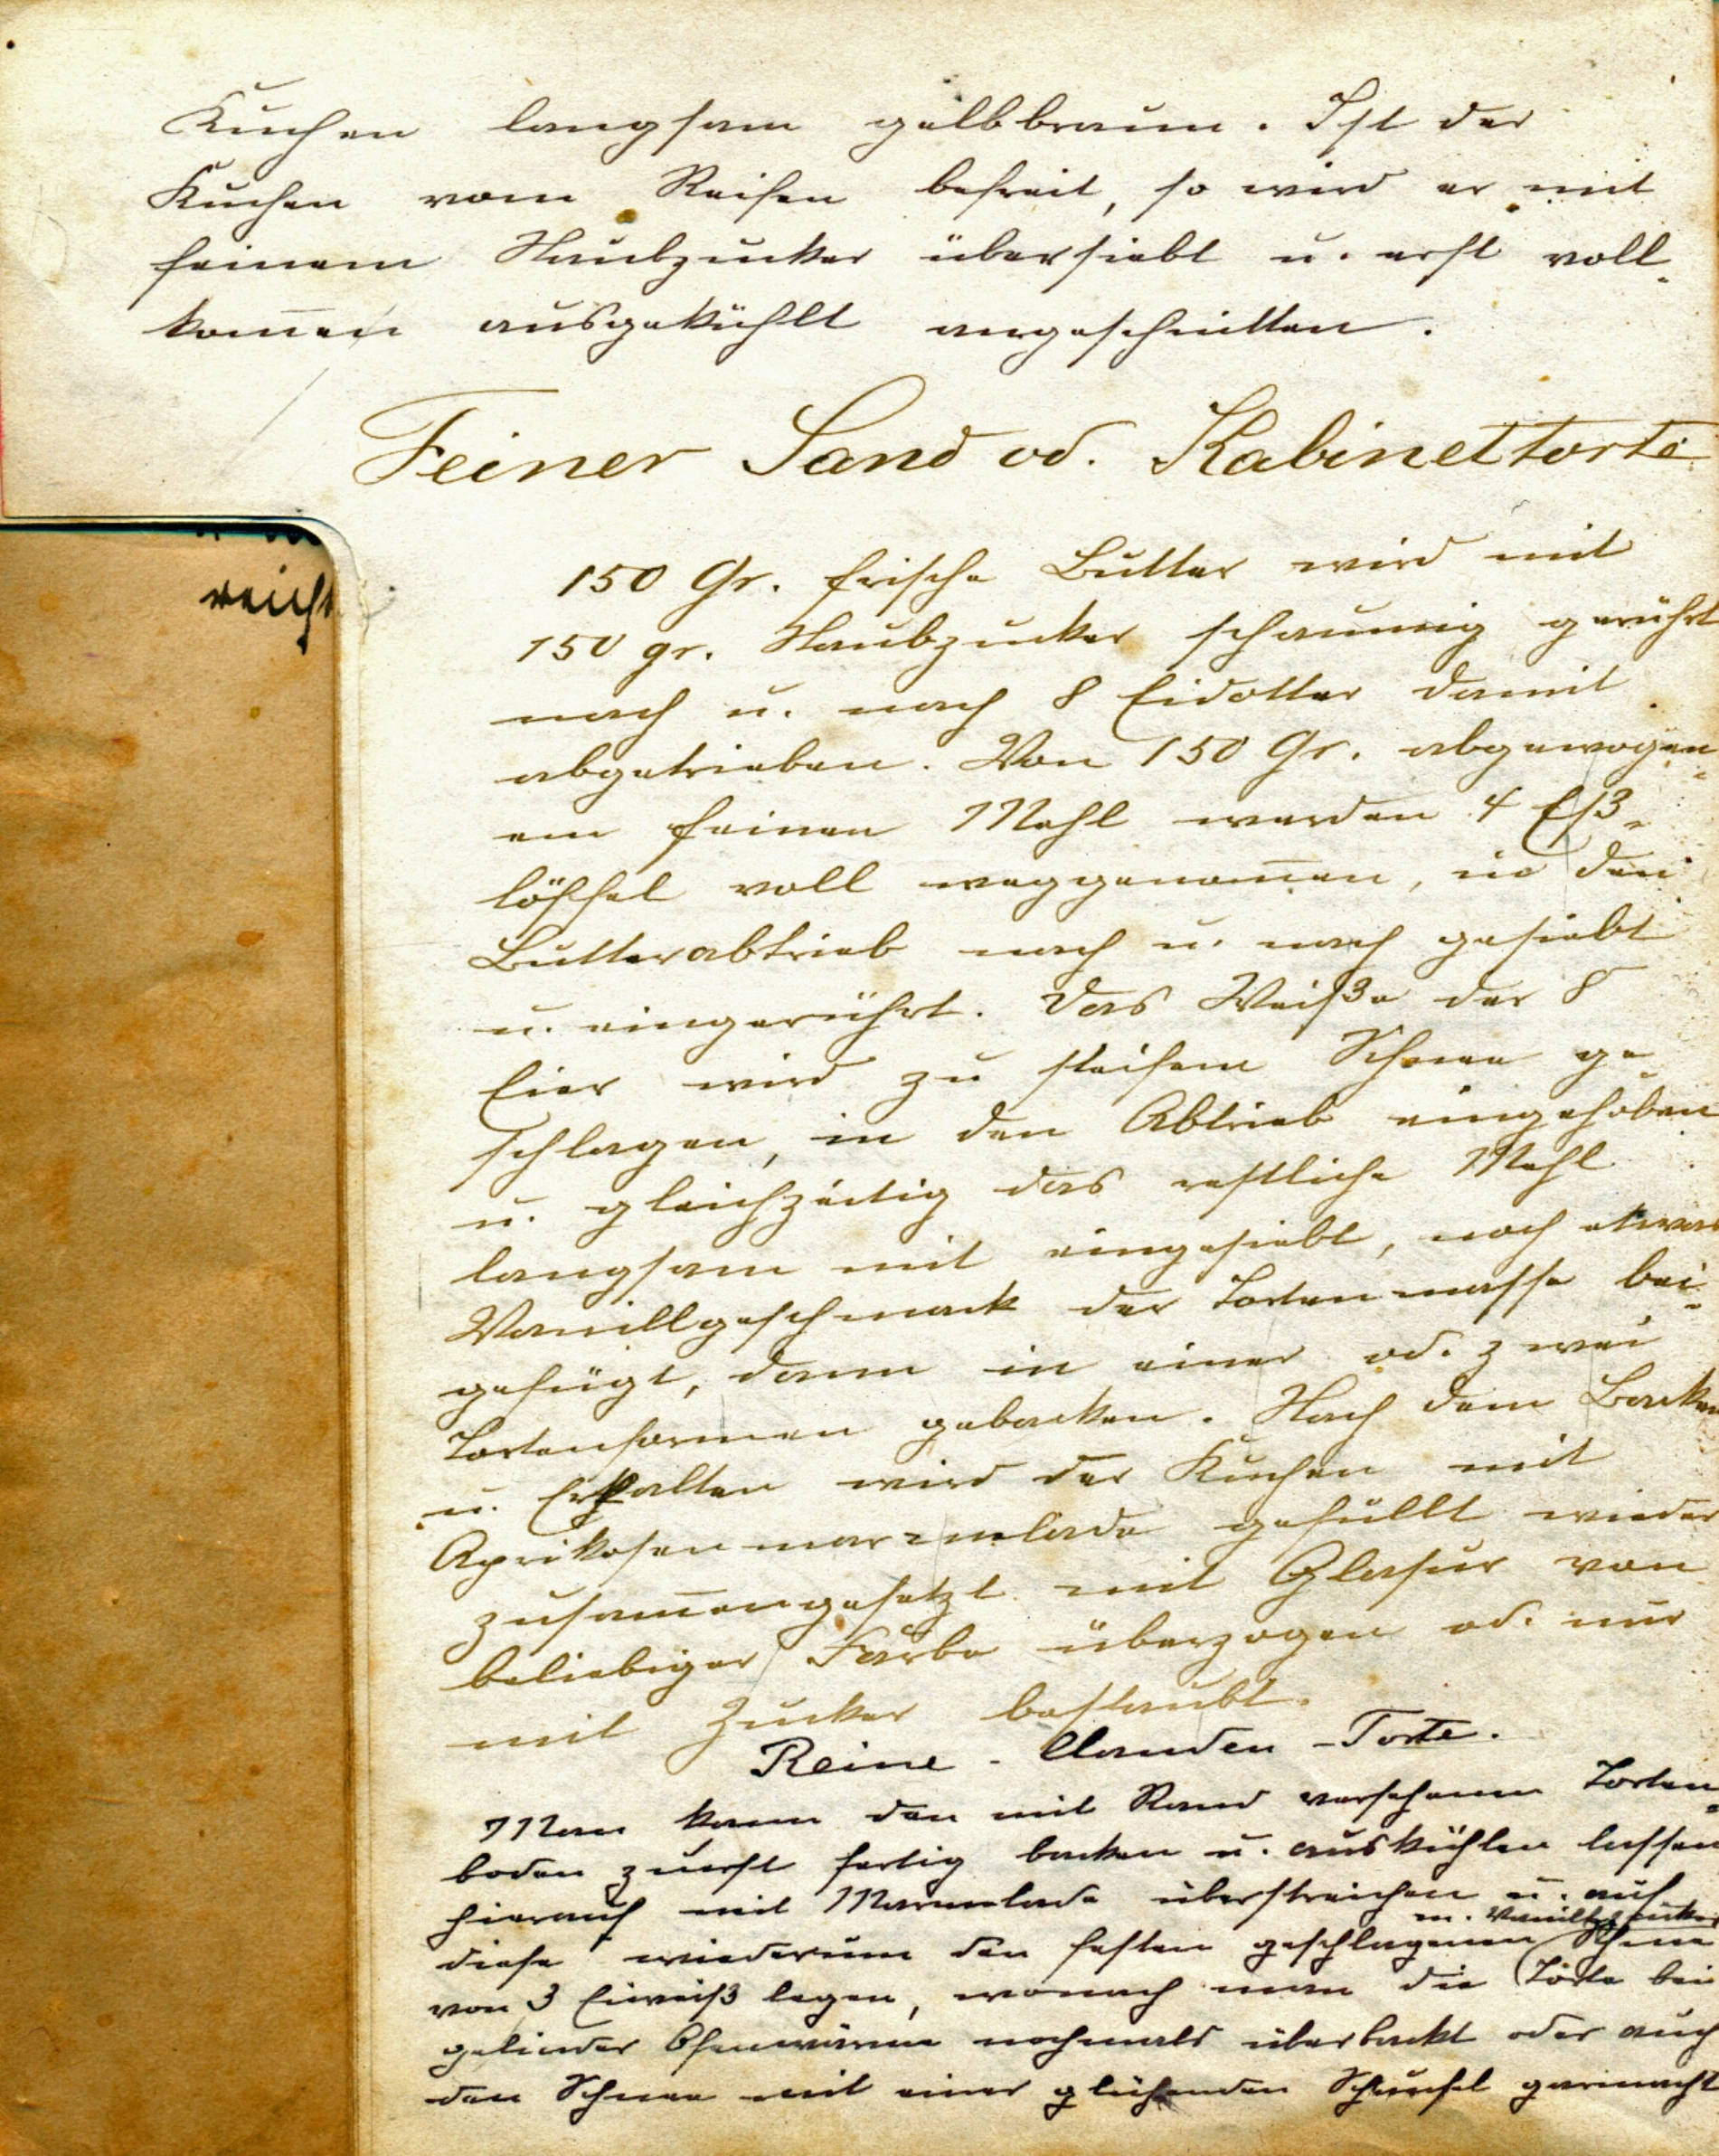 Kuchen langsam gelbbraun. Ist der
Kuchen vom Reifen befreit, so wird er mit
feinem Staubzucker übersiebt u. erst voll-
kom̅en ausgekühlt angeschnitten.
Feiner Sand od. Kabinettorte
reicht
150 Gr. frische Butter wird mit
150 gr. Staubzucker schaumig gerührt
nach u. nach 8 Eidotter damit
abgetrieben. Von 150 Gr. abgewogen-
em feinen Mehl werden 4 Eß-
löffel voll weggenom̅en, in den
Butterabtrieb nach u. nach gesiebt
u. eingerührt. Das Weiße der 8
Eier wird zu steifem Schnee ge-
schlagen, in den Abtrieb eingehoben
u. gleichzeitig das restliche Mehl
langsam mit eingesiebt, noch etwas
Vanillgeschmack der Tortenmasse bei-
gefügt, dann in einer od. zwei
Tortenformen gebacken. Nach dem Backen
u. Erkalten wird der Kuchen mit
Aprikosenmarmelade gefüllt wieder
zusam̅engesetzt mit Glasur von
beliebiger Farbe überzogen od. nur
mit Zucker bestaubt.
Reine - Clauden - Torte.
Man kann den mit Rand versehenen Torten-
boden zuerst fertig backen u. auskühlen lassen
hierauf mit Marmelade überstreichen u. auf
m. Vanillzucker
diese wiederum den festen geschlagenen Schnee
von 3 Eiweiß legen, wonach man die Torte bei
gelinder Ofenwärme nochmals überbackt oder auch
den Schnee mit einer glühenden Schaufel gemacht